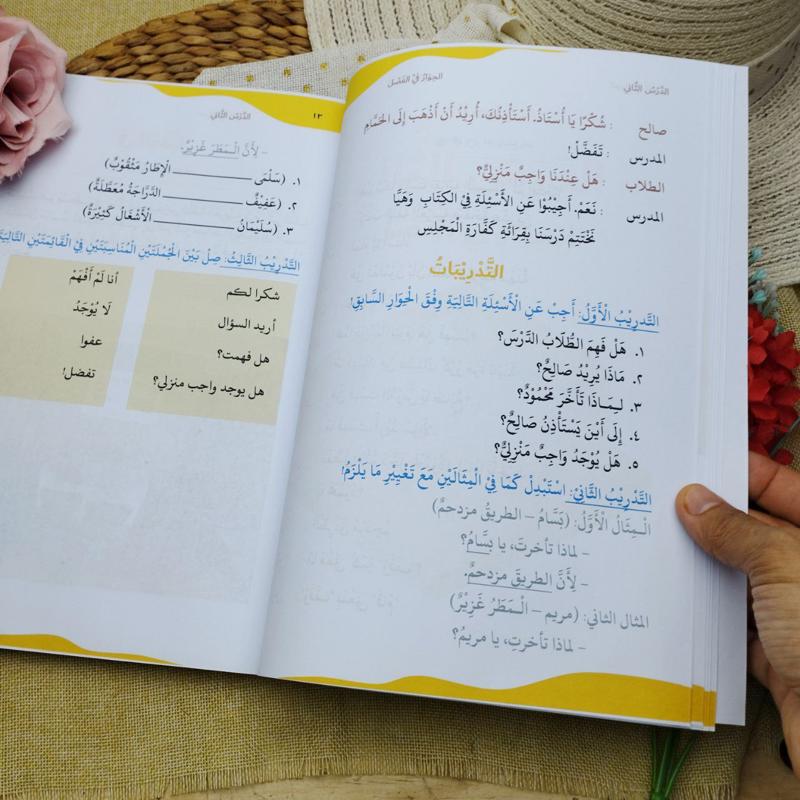 الدَّرْسُ الثَّانِي
الحِوَارُ فِي الفَصْلِ
صالح : شُكْرًا يَا أُسْتَاذُ. أَسْتَأْذِنُكَ، أُرِيْدُ أَنْ أَذْهَبَ إِلَى الحَمَّامِ
المدرس : تَفَضَّلْ!
الطلاب : هَلْ عِنْدَنَا وَاجِبٌ مَنْزِلِيٌّ؟
المدرس : نَعَمْ. أَجِيْبُوْا عَنِ الأَسْئِلَةِ فِيْ الكِتَابِ وَهَيَّا
نَخْتَتِمْ دَرْسَنَا بِقِرَائَةِ كَفَّارَةِ الْمَجْلِسِ
التَّدْرِيْبَاتُ
التَّدْرِيْبُ الْأَوَّلُ: أَجِبْ عَنِ الْأَسْئِلَةِ التَّالِيَةِ وِفْقَ الْحِوَارِ السَّابِقِ!
١. هَلْ فَهِمَ الطُّلَابُ الدَّرْسَ؟
٢. مَاذَا يُرِيْدُ صَالِحٌ؟
٣. لِمَاذَا تَأَخَّرَ مَحْمُوْدٌ؟
٤. إِلَى أَيْنَ يَسْتَأْذِنُ صَالِحٌ؟
٥. هَلْ يُوْجَدُ وَاجِبٌ مَنْزِلِيٌّ؟
التَّدْرِيْبُ الثَّانِيْ: اسْتَبْدِلْ كَمَا فِيْ الْمِثَالَيْنِ مَعَ تَغْيِيْرِ مَا يَلْزَمُ!
الْمِثَالُ الْأَوَّلُ: (بَسَّامُ – الطريقُ مزدحمٌ)
– لماذا تأخرتَ، يا بسَّامُ؟
– لِأَنَّ الطريقَ مزدحمٌ.
المثال الثاني: (مريم – الْمَطَرُ غَزِيْرٌ)
– لماذا تأخرتِ، يا مريمُ؟
الدَّرْسُ الثَّانِي
١٣
– لِأَنَّ الْمَطَرَ غَزِيْرٌ.
١. (سَلْمَى ــــــــــ الْإِطَارُ مَثْقُوْبٌ)
٢. (عَفِيْفٌ ــــــــــ الدَّرَّاجَةُ مُعَطَّلَةٌ)
٣. (سُلَيْمَانُ ــــــــــ الْأَشْغَالُ كَثِيْرَةٌ)
التَّدْرِيْبُ الثَّالِثُ: صِلْ بَيْنَ الْجُمْلَتَيْنِ الْمُنَاسِبَتَيْنِ فِيْ الْقَائِمَتَيْنِ
شكرا لكم
أريد السؤال
هل فهمت؟
هل يوجد واجب منزلي؟
أنا لَمْ أَفْهَمْ
لَا يُوْجَدُ
عفوا
تفضل!